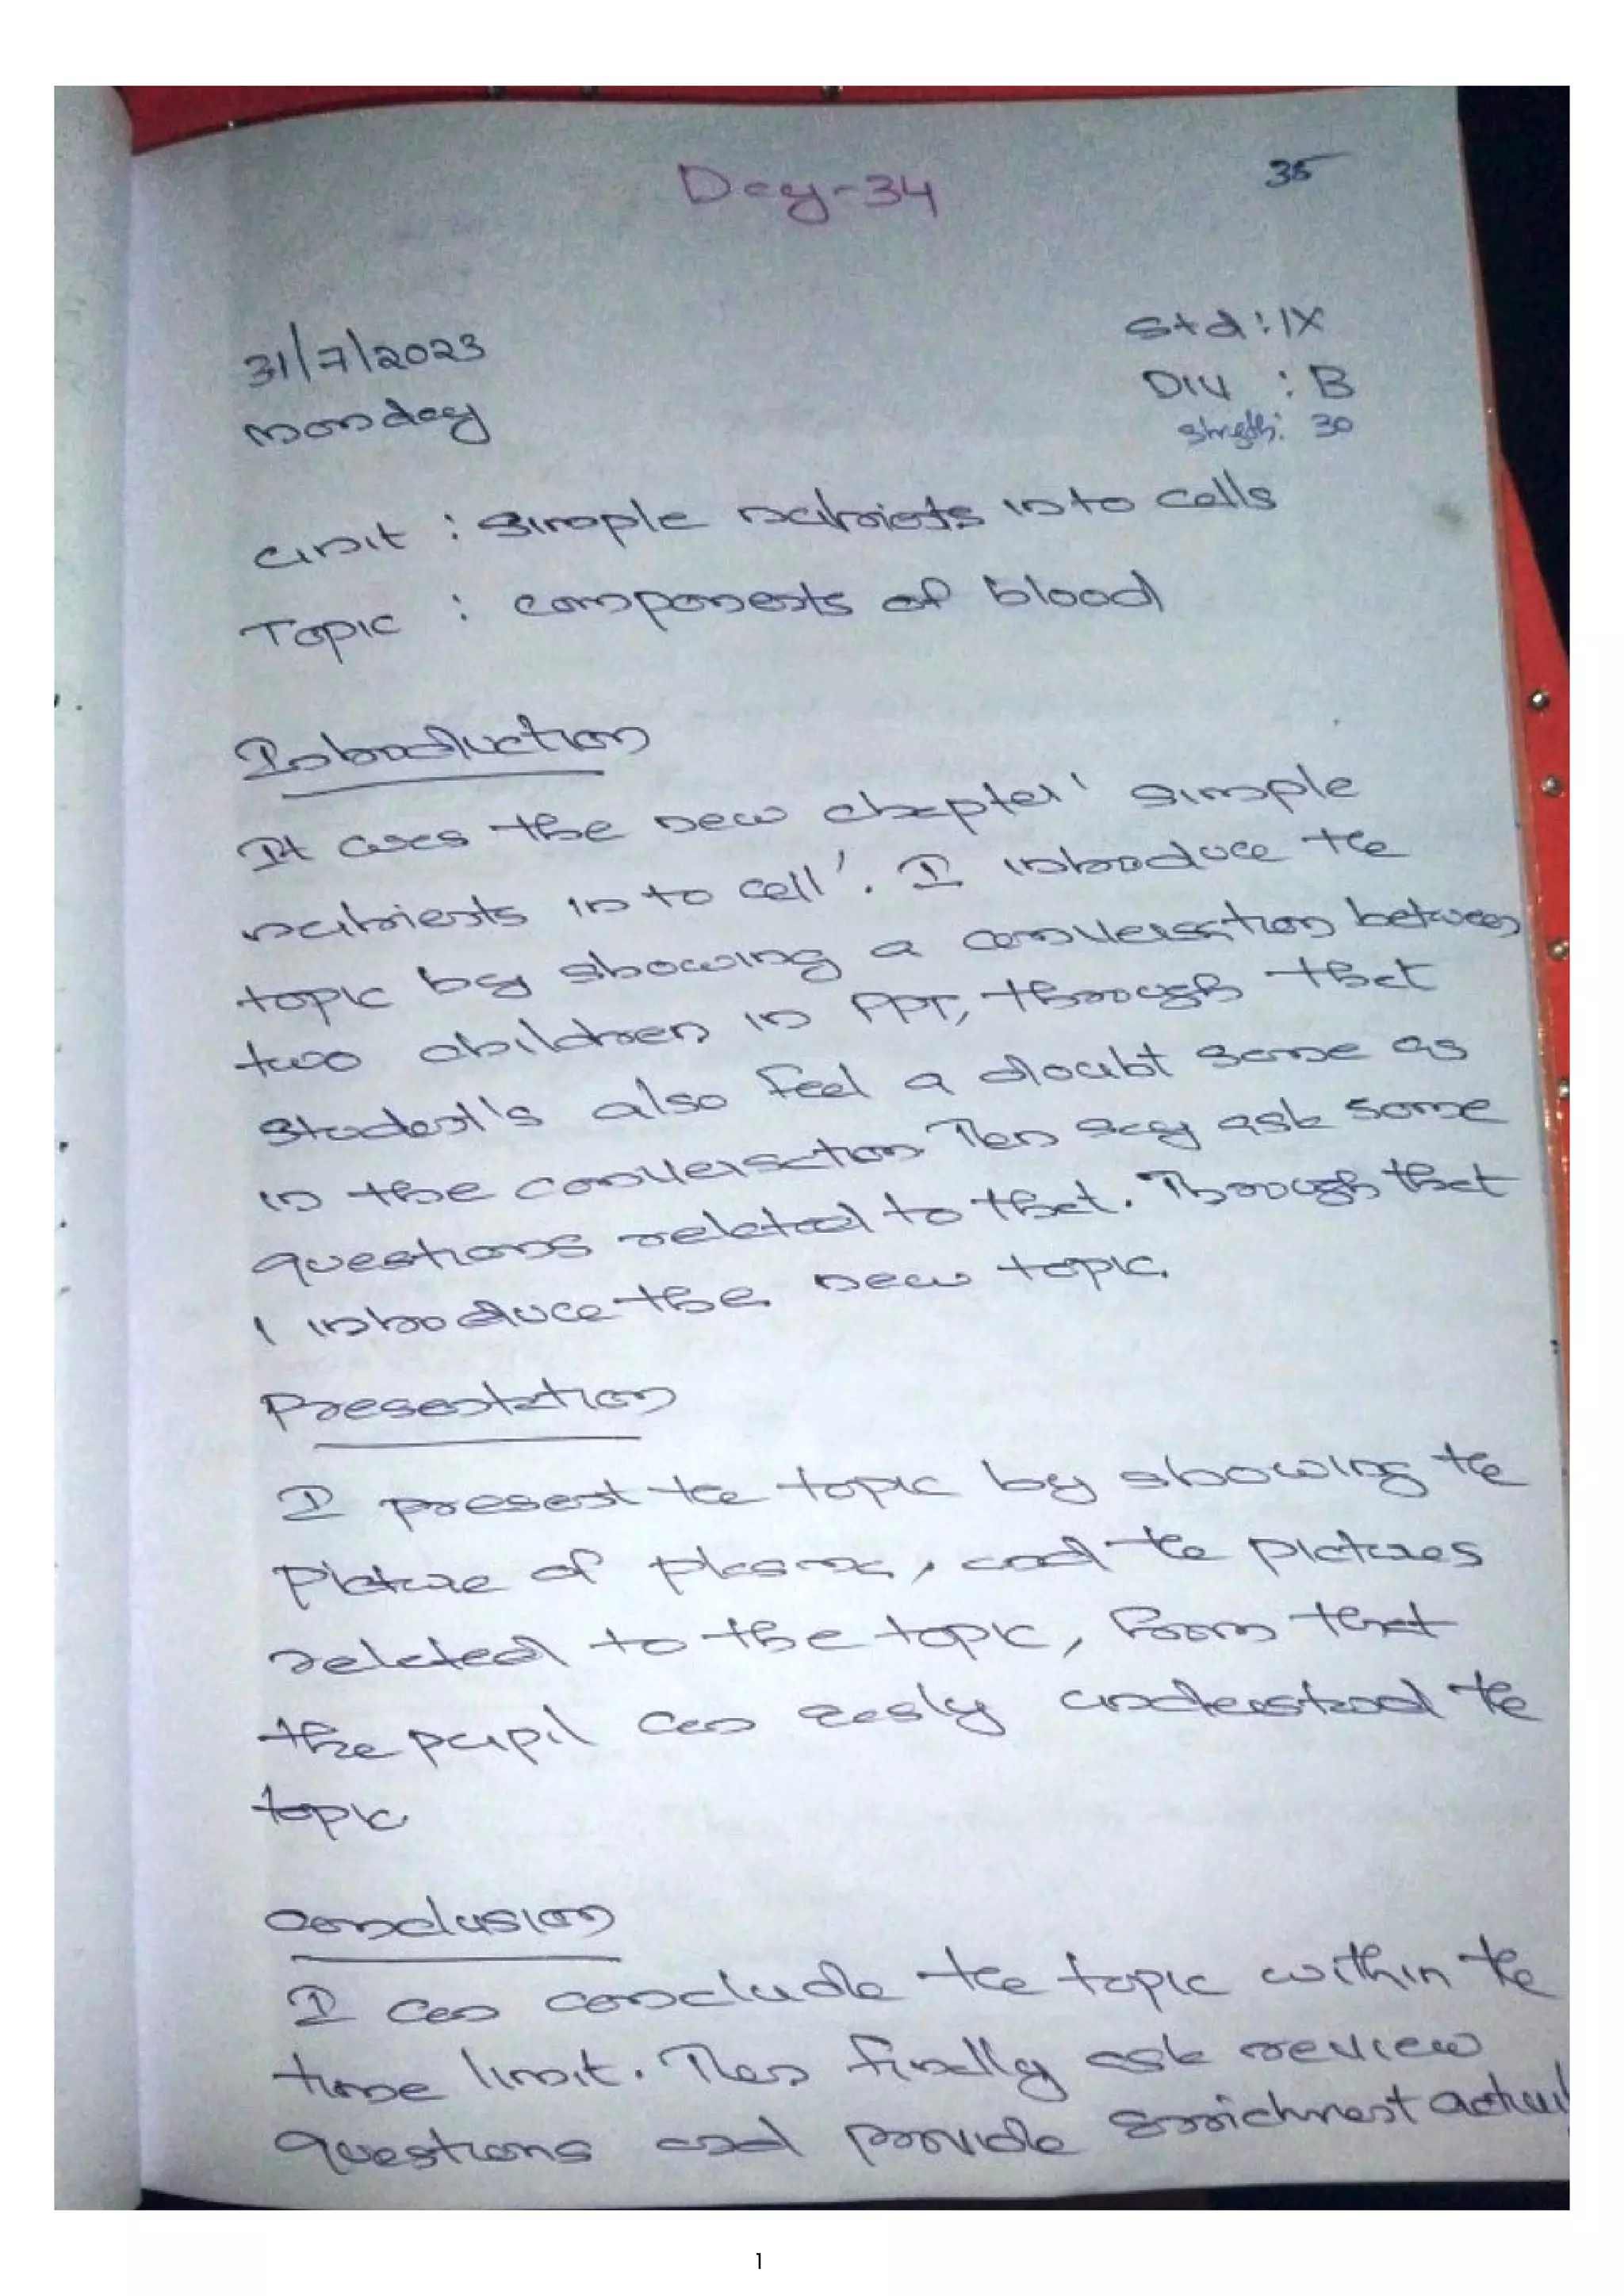 Day-34
35
31/7/2023
Monday
Std : IX
Div : B
Strength: 30
Unit : Simple nutrients into cells
Topic : components of blood
Introduction
It was the new chapter 'simple
nutrients in to cell'. I introduce the
topic by showing a conversation between
two children in PPT, through that
Student's also feel a doubt same as
in the conversation. Then say ask some
questions related to that. Through that
I introduce the new topic.
Presentation
I present the topic by showing the
picture of plasma, and the pictures
related to the topic, from that
the pupil can easly understood the
topic.
Conclusion
I can conclude the topic within the
time limit. Then finally ask review
questions and provide Enrichment
1